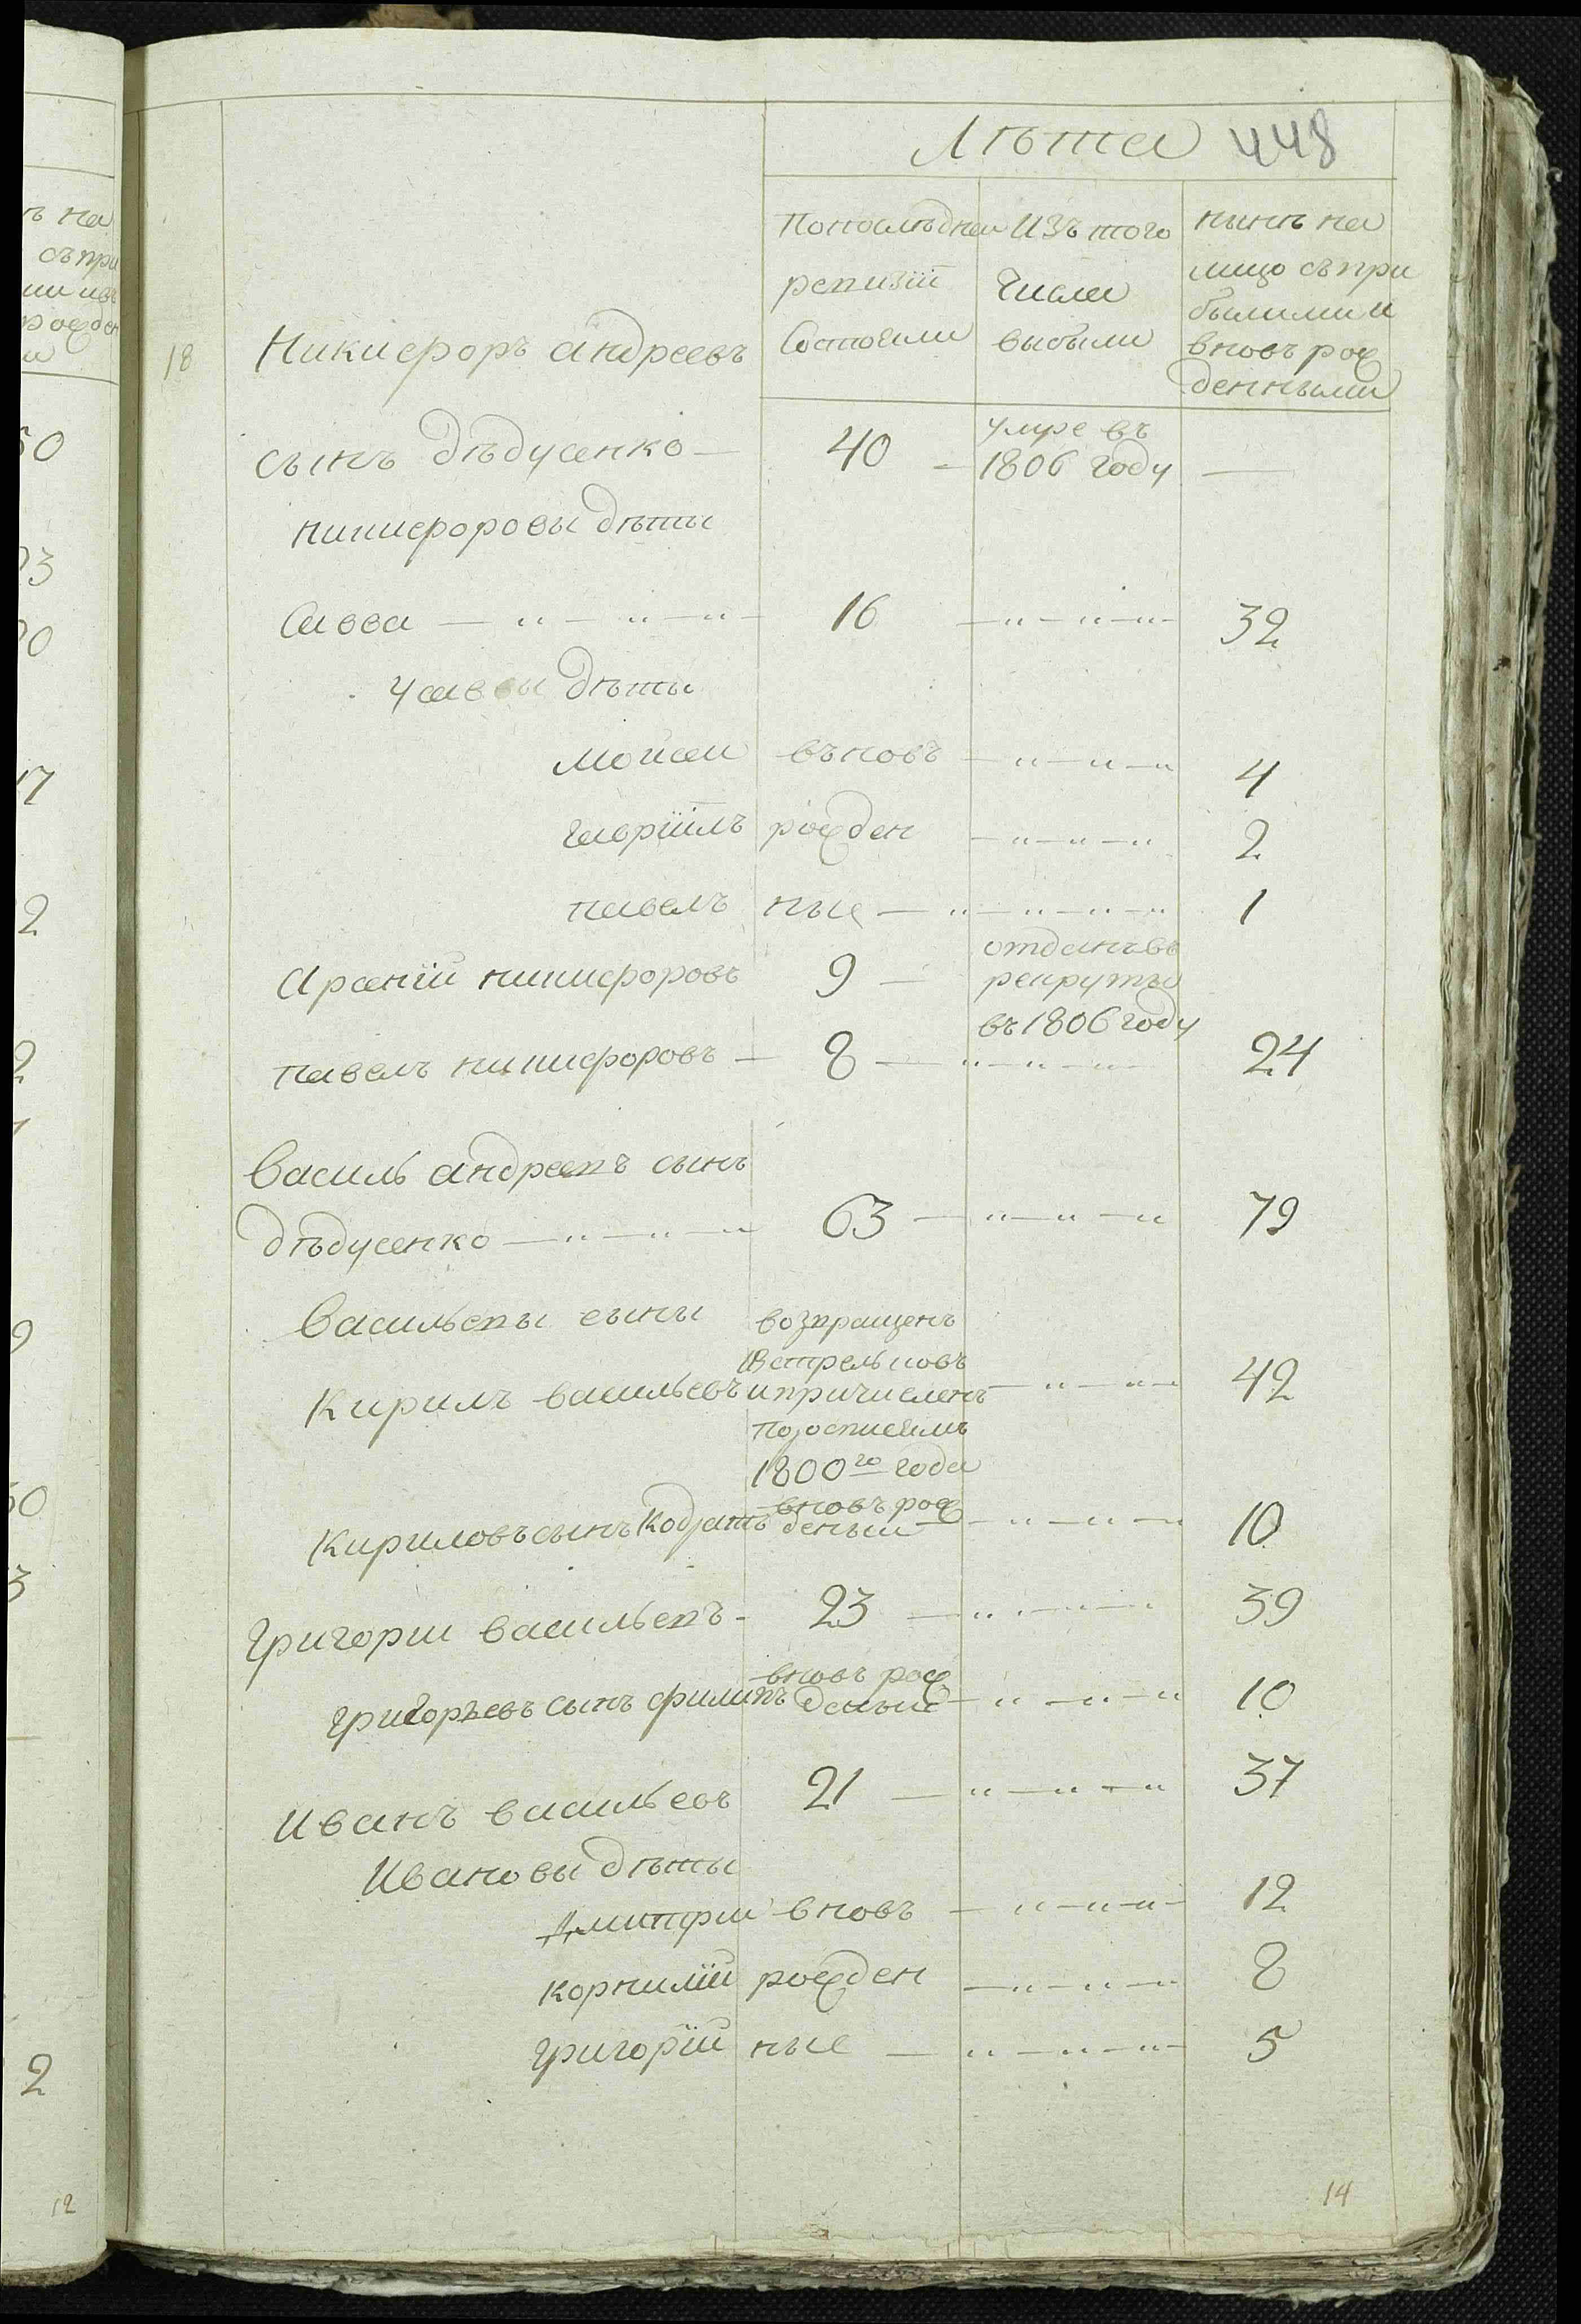 Лѣта 448
По последнеи ревизіи Состояли
Изъ того Числа выбыли
нынѣ на лицо съ при былыми и вновь рож денными
18 Никифоръ андреевъ
сынъ дѣдусенко — 40 — умре въ 1806 году —
никифоровы дѣти
Савва — 16 — 32
у саввы дѣти
мойсеи въновь — 4
гавріилъ рожден — 2
павелъ ные — 1
Арсеній никифоровъ 9 — отданъ въ рекруты въ 1806 году
павелъ никифоровъ — 8 — 24
Василь андреевъ сынъ
дѣдусенко — 63 — 79
Васильевы сыны
Кирилъ васильевъ возвращенъ
и причисленъ
1800го года — 42
Кириловъ сынъ Кодратъ вновь рож деный — 10
Григории васильевъ — 23 — 39
григорьевъ сынъ филипъ вновь рож деные — 10
Иванъ васильевъ 21 — 37
Ивановы дѣти
Дмитрии вновь — 12
корнилій рожден — 8
григорій ные — 5
14
ъ на
съ при
50
17
2
2
9
50
3
2
12